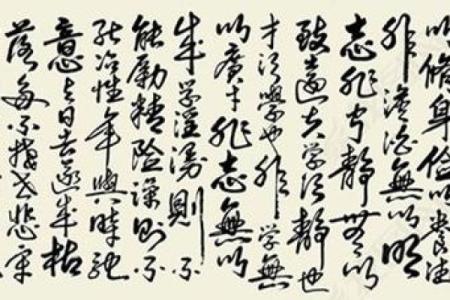 以脩身儉以養德
非澹泊無以明
志非寧靜無以
致遠夫學須靜也
才須學也非學無
以廣才非志無以
成學淫漫則不
能勵精險躁則不
能冶性年與時馳
意與日去遂成枯
落多不接世悲守